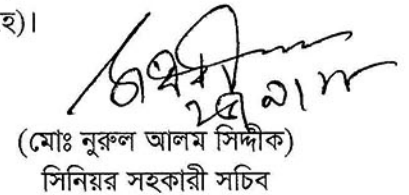 হ)।
(মোঃ নুরুল আলম সিদ্দীক)
সিনিয়র সহকারী সচিব